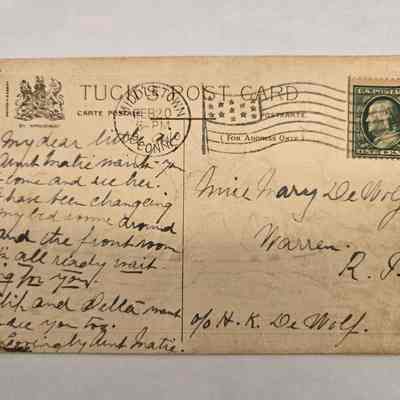 TUCK'S POST CARD
CARTE POSTALE
POSTKARTE
(FOR ADDRESS ONLY)
MIDDLETOWN
FEB 20
6-PM
CONN.
U.S. POSTAGE
ONE CENT
My dear little
Aunt Matie wants you
come and see her.
have been changeing
my bed room around
and the front room
is all ready wait
ing for you.
and Della want
see you too.
Lovingly Aunt Matie.
Miss Mary De Wolf
Warren
R. I.
c/o H. K. De Wolf.